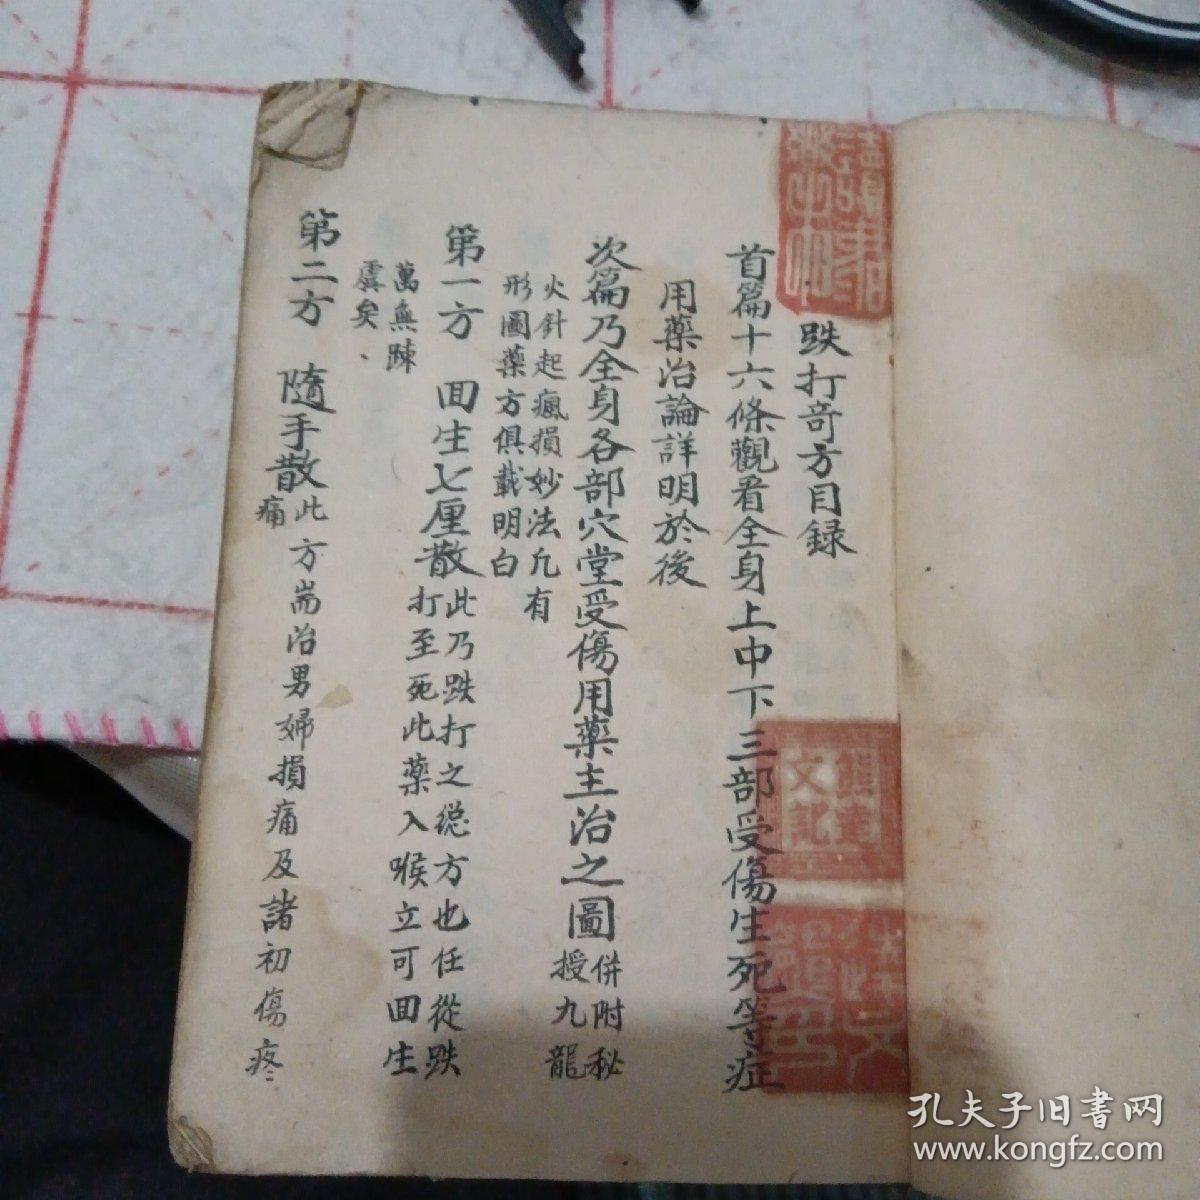 跌打奇方目录
首篇十六條觀看全身上中下三部受傷生死等症
用藥治論詳明於後
次篇乃全身各部穴堂受傷用藥主治之圖
併附秘
授九龍
火針起瘋損妙法凡有
形圖藥方俱載明白
第一方 回生七厘散
此乃跌打之總方也任從跌
打至死此藥入喉立可回生
萬無踈
虞矣、
第二方 隨手散
此方耑治男婦損痛及諸初傷疼
痛
孔夫子旧书网
www.kongfz.com